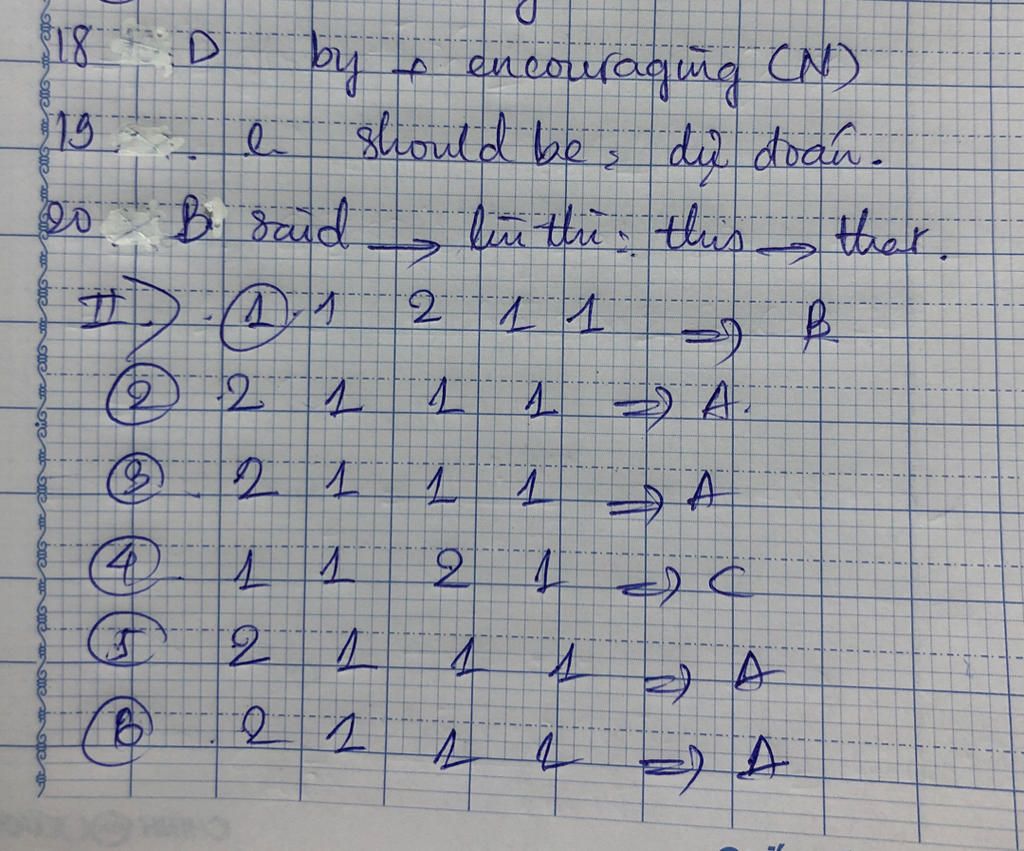 18 D by + encouraging (N)
19 . should be : dự đoán.
20 B said → lùi thì : this → that.
II) . 1 . 1 2 1 1 => B
2 2 1 1 1 => A.
3 . 2 1 1 1 => A
4 . 1 1 2 1 => C
5 2 1 1 1 => A
6 . 2 1 1 1 => A